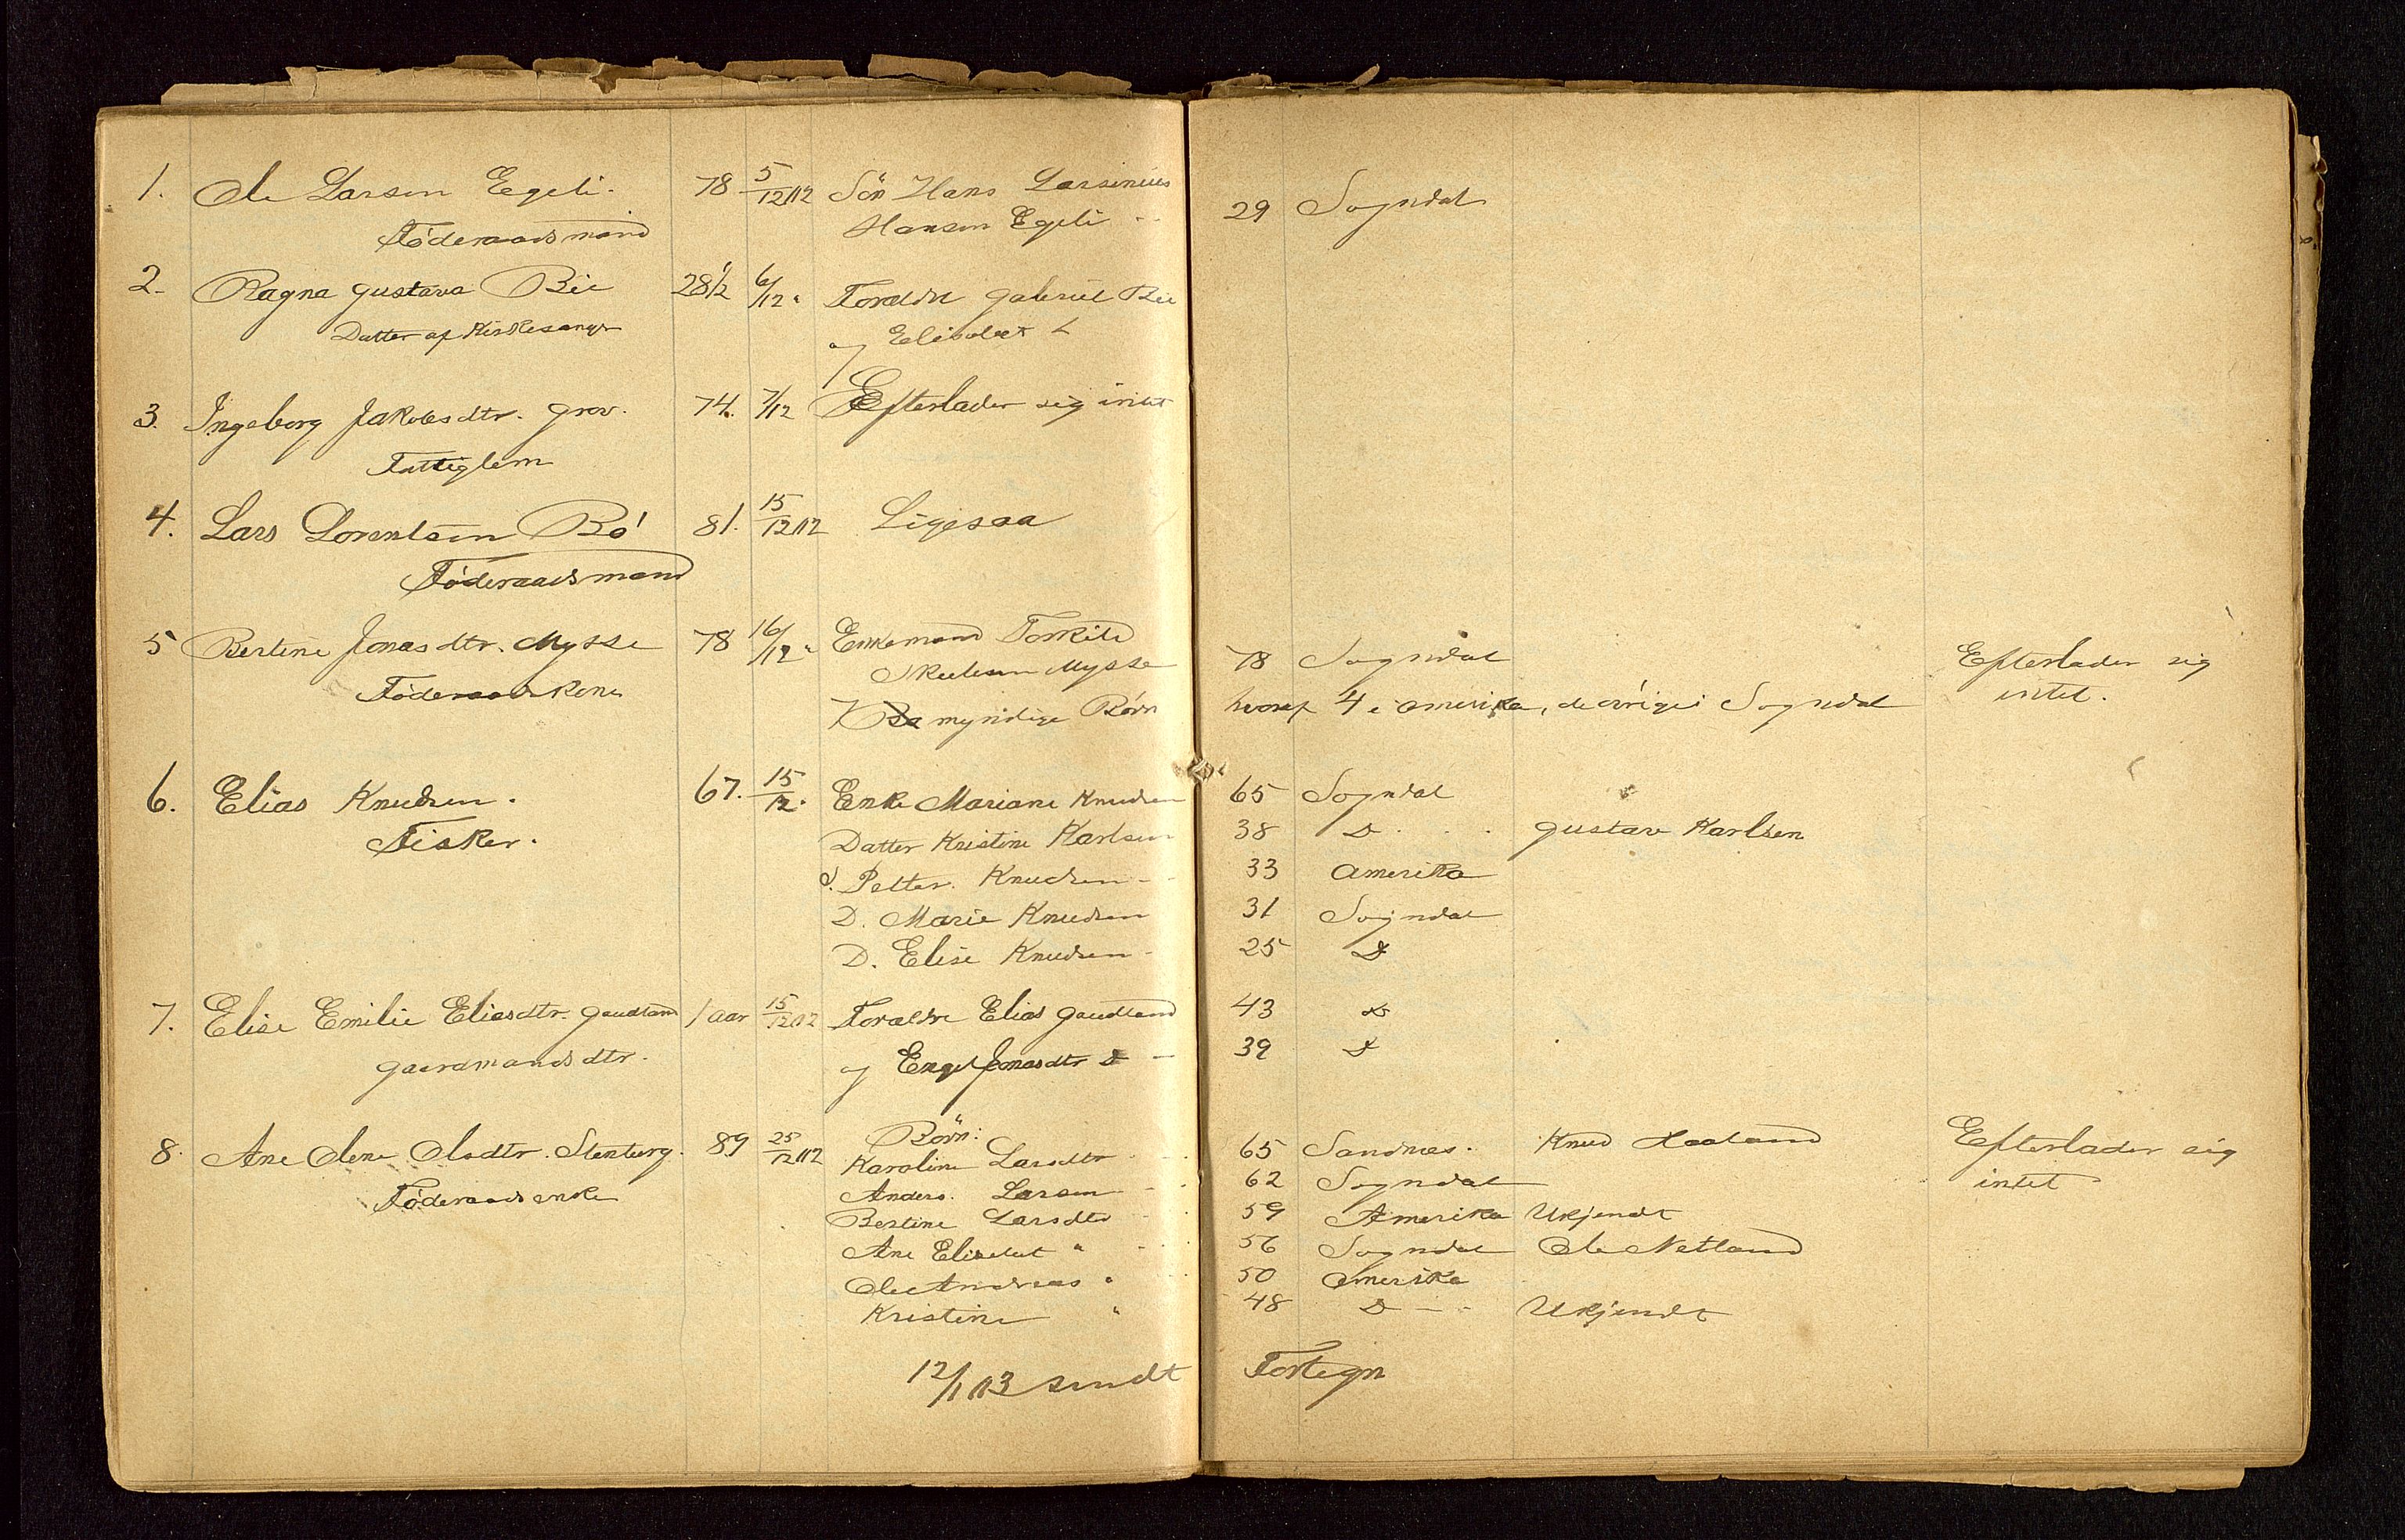 1. Ole Larsen Egeli. 78 5/12/12 Sön Hans Larsenius 29 Sogndal
Föderaadsmand Hansen Egeli
2. Ragna Gustava Bie 28½ 6/12 " Foreldre Gabriel Bie
Datter af Kirkesanger og Elisabet
3. Ingeborg Jakobsdtr. Grov. 74. 7/12 Efterlader sig intet
Fattiglem
4. Lars Lorentsen Bö 81. 15/12/12 Ligesaa
Föderaadsmand
5 Bertine Jonasdtr. Mysse 78 16/12 " Enkemand Torkild 78 Sogndal Efterlader sig
Föderaadskone Skulesen Mysse intet.
7 myndige Börn hvoraf 4 i Amerika, de övrige i Sogndal
6. Elias Knudsen. 67. 15/12 " Enke Mariane Knudsen 65 Sogndal
Fisker. Datter Kristine Karlsen 38 D Gustav Karlsen
S. Petter Knudsen 33 Amerika
D. Marie Knudsen 31 Sogndal
D. Elise Knudsen 25 D
7. Elise Emilie Eliasdtr. Gaudland 1 aar 15/12/12 Foreldre Elias Gaudland 43 D
Gaardmandsdtr. og Engel Jonasdtr D 39 D
8. Ane Olene Olsdtr. Stenberg. 89 25/12/12 Börn:
Karoline Larsdtr 65 Sandnes. Knud Haaland Efterlader sig
Föderaadsenke Anders Larsen 62 Sogndal intet
Bertine Larsdtr 59 Amerika Ukjendt
Ane Elisabet " 56 Sogndal Ole Netland
Ole Andreas " 50 Amerika
Kristine " 48 D Ukjendt
12/1/13 sendt Fortegn